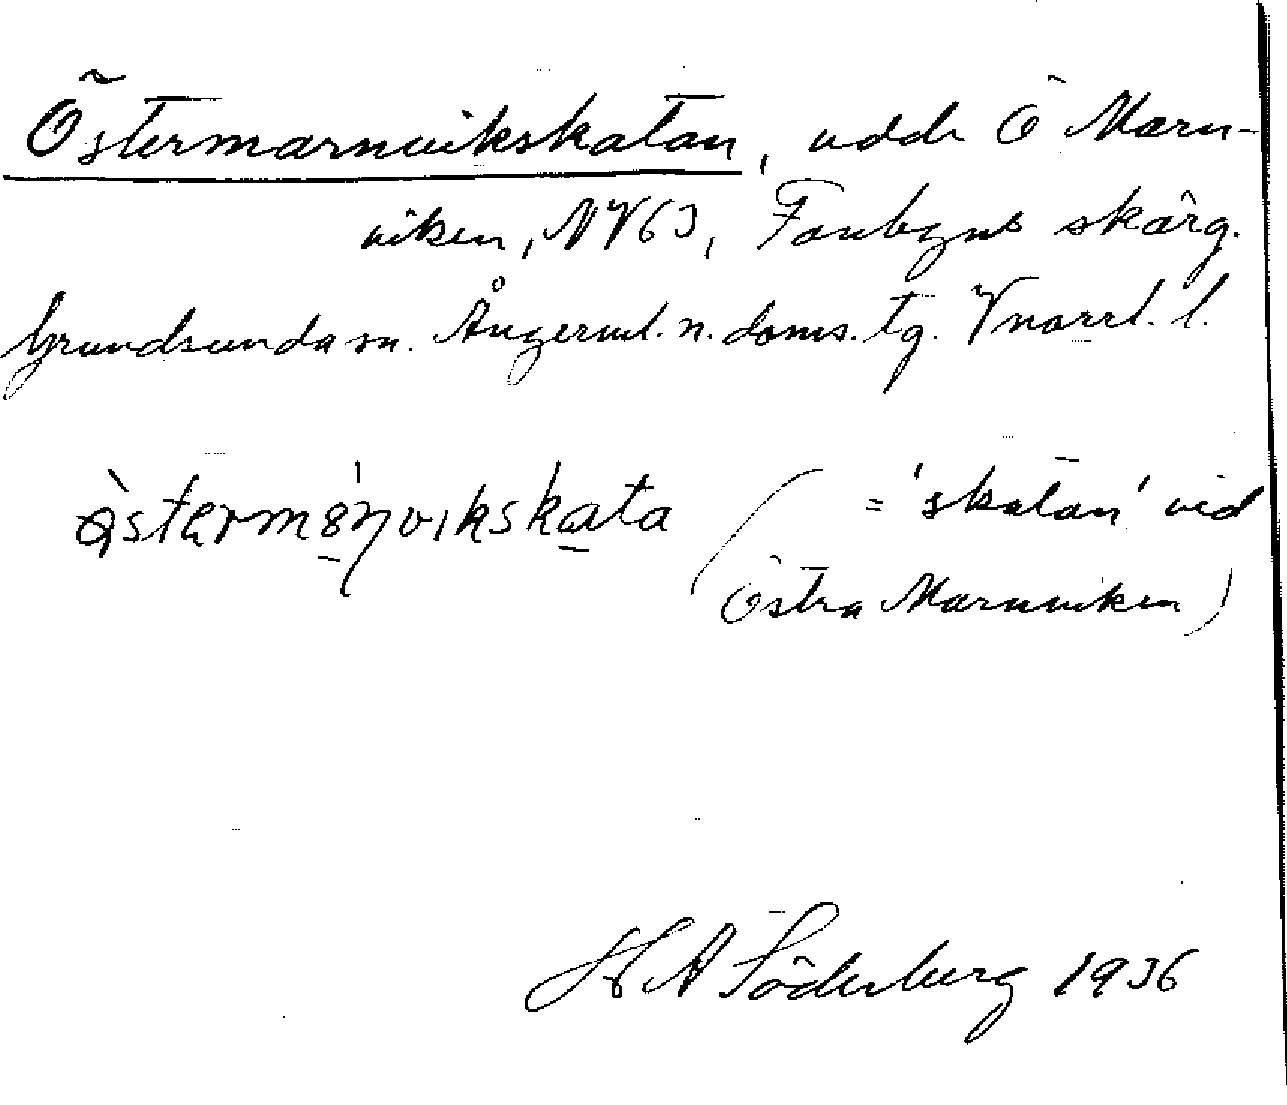 Östermarnvikskatan, udde Ö Marn-
viken, NV63, Faubyns skärg.
Grundsunda sn. Ångerml. n. doms. tg. Vnorrl. l.
(= 'skatan' vid
Östra Marnviken)
H A Söderberg 1936